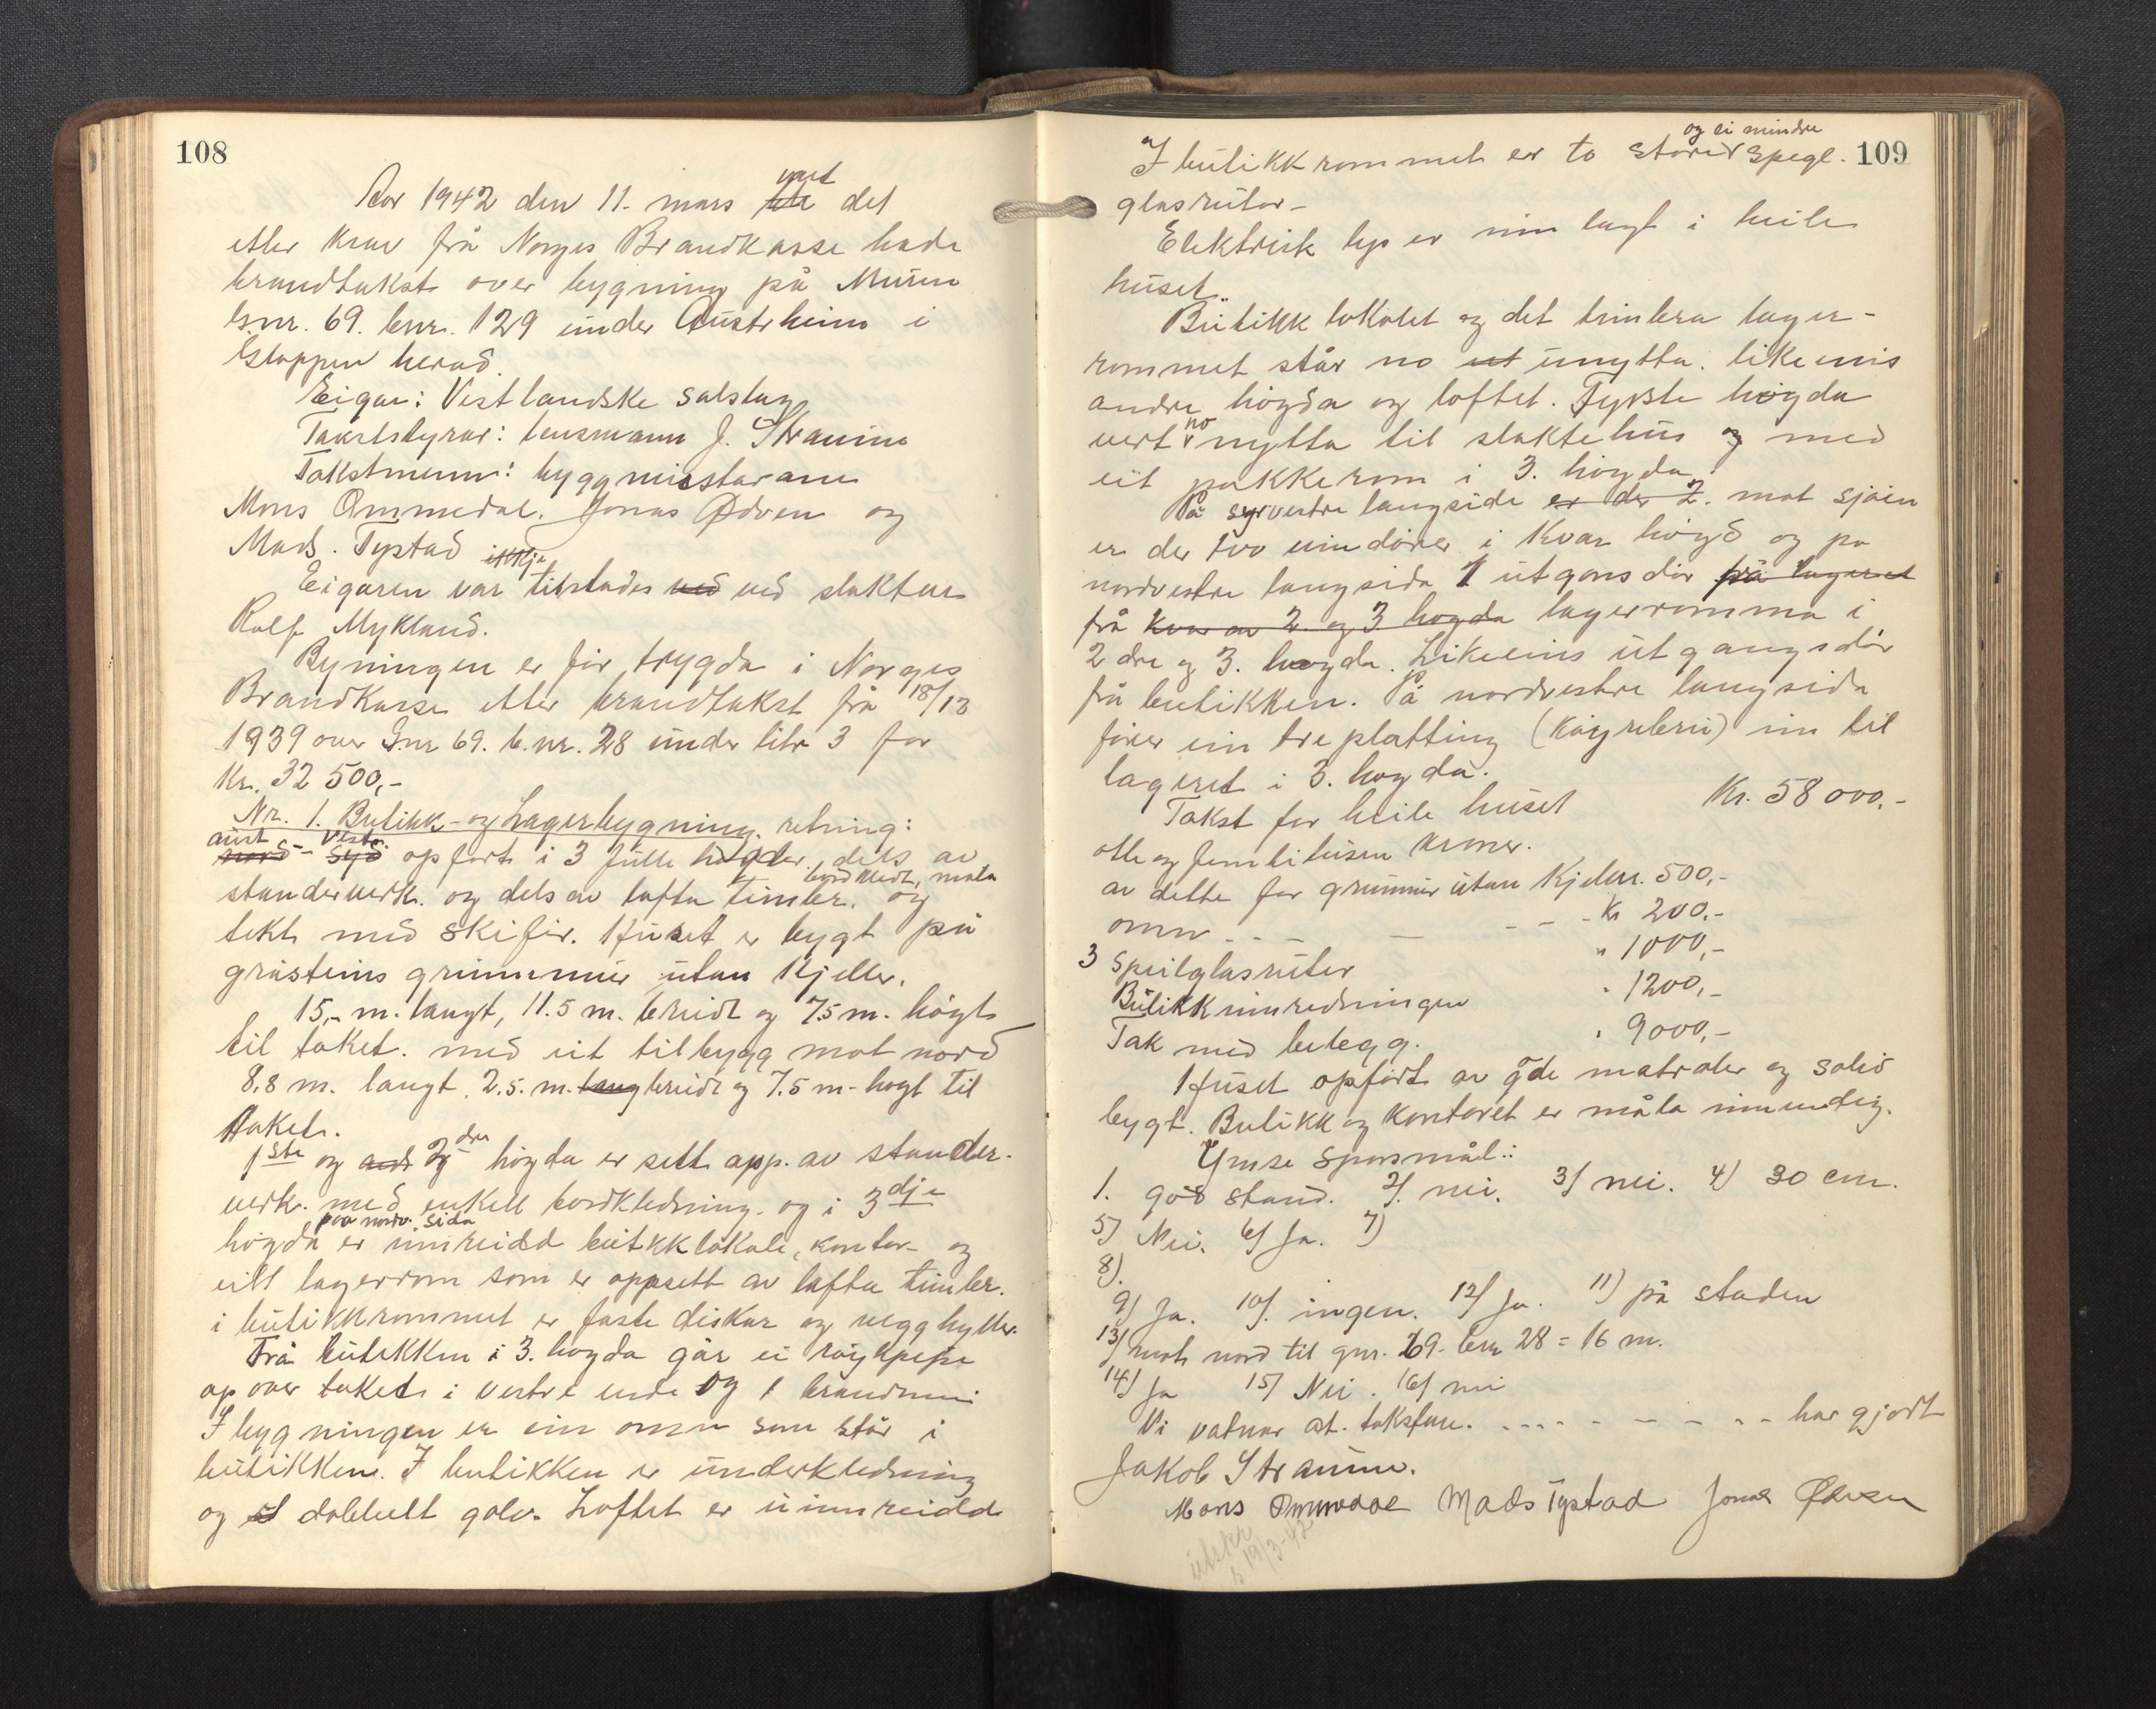 108
Aar 1942 den 11. mars vart det
etter krav frå Norges Brandkasse halde
brandtakst over bygning på Muren
Gnr. 69. bnr. 129 under Austrheim i
Gloppen herad.
Eigar: Vestlandske salslag
Takststyrar: lensmann J. Straume
Takstmenn: byggmeistarane
Mons Ommedal. Jonas Ødven og
Mads. Tystad
Eigaren var ikkje tilstades ved ved slaktar
Rolf Mykland.
Byningen er før trygda i Norges
Brandkasse etter brandtakst frå 18/12
1939 over Gnr 69. b.nr. 28 under litr 3 for
Kr. 32 500,-
Nr. 1. Butikk- og Lagerbygning. retning:
aust - vest. opført i 3 fulle høgder, dels av
standerverk. og dels av lafta timber. bordkledt, mala og
tekt med skifer. Huset er bygt på
gråsteins grunnmur utan kjeller.
15,- m. langt, 11.5 m. breidt og 7.5 m. högt
til taket. med eit tilbygg mot nord
8.8 m. langt. 2.5. m. lang breidt og 7.5 m- hogt til
taket.
1ste og 2dre högda er sett opp. av stander-
verk. med enkell bordkledning. og i 3dje
högda paa nordv. sida er innreidd butikklokale, kontor og
eitt lagerrom som er oppsett av lafta timber.
i butikkrommet er faste diskar og vegghyller.
Frå butikken i 3. hogda går ei röykpipe
op over taket i vestre ende og 1 brandmur
I bygningen er ein omn som står i
butikken. I butikken er underkledning
og dobbelt golv. Loftet er uinnreidd
109
I butikkrommet er to store og ei mindre spegl-
glasrutor-
Elektrisk lys er inn lagt i heile
huset.
Butikk lokalet og det timbra lager-
rommet står no ut unytta. likeeins
andre högda og loftet. Fyrste högda
vert no nytta til slaktehus og med
eit pakkerom i 3. högda.
På syrvestre langside er der 2. mot sjøen
er der tvo eindører i kvar högd og pa
nordvestre langsida 1 utgansdör frå lageret
frå kvar av 2. og 3 hogda lagerromma i
2dre og 3. hogda. Likeeins utgangsdör
frå butikken. På nordvestre langsida
förer ein treplatting (køyrebru) inn til
lageret i 3. hogda.
Takst for heile huset Kr. 58 000,-
otte og femti tusen kroner.
av dette for grunnmur utan kjeller. 500,-
omn - - - - - - Kr 200.-
3 speilglasruter " 1000,-
Butikkinnredningen " 1200,-
Tak med belegg. " 9000,-
Huset opført av gode matraler og solid
bygt. Butikk og kontoret er måla innvendig.
Ymse spörsmål:
1. god stand. 2/. nei. 3/ nei. 4) 30 cm.
5) Nei. 6/ Ja. 7)
8).
9) Ja. 10/. ingen. 12/ Ja. 11) på staden
13) mot nord til gnr. 69. bnr 28 = 16 m.
14) Ja 15) Nei. 16/ nei
Vi vatnar at. takstfun. - - - - - - - - har gjort
Jakob Straume.
Mons Ommedal Mads Tystad Jonas Ødven
utskr.
s 19/3-42